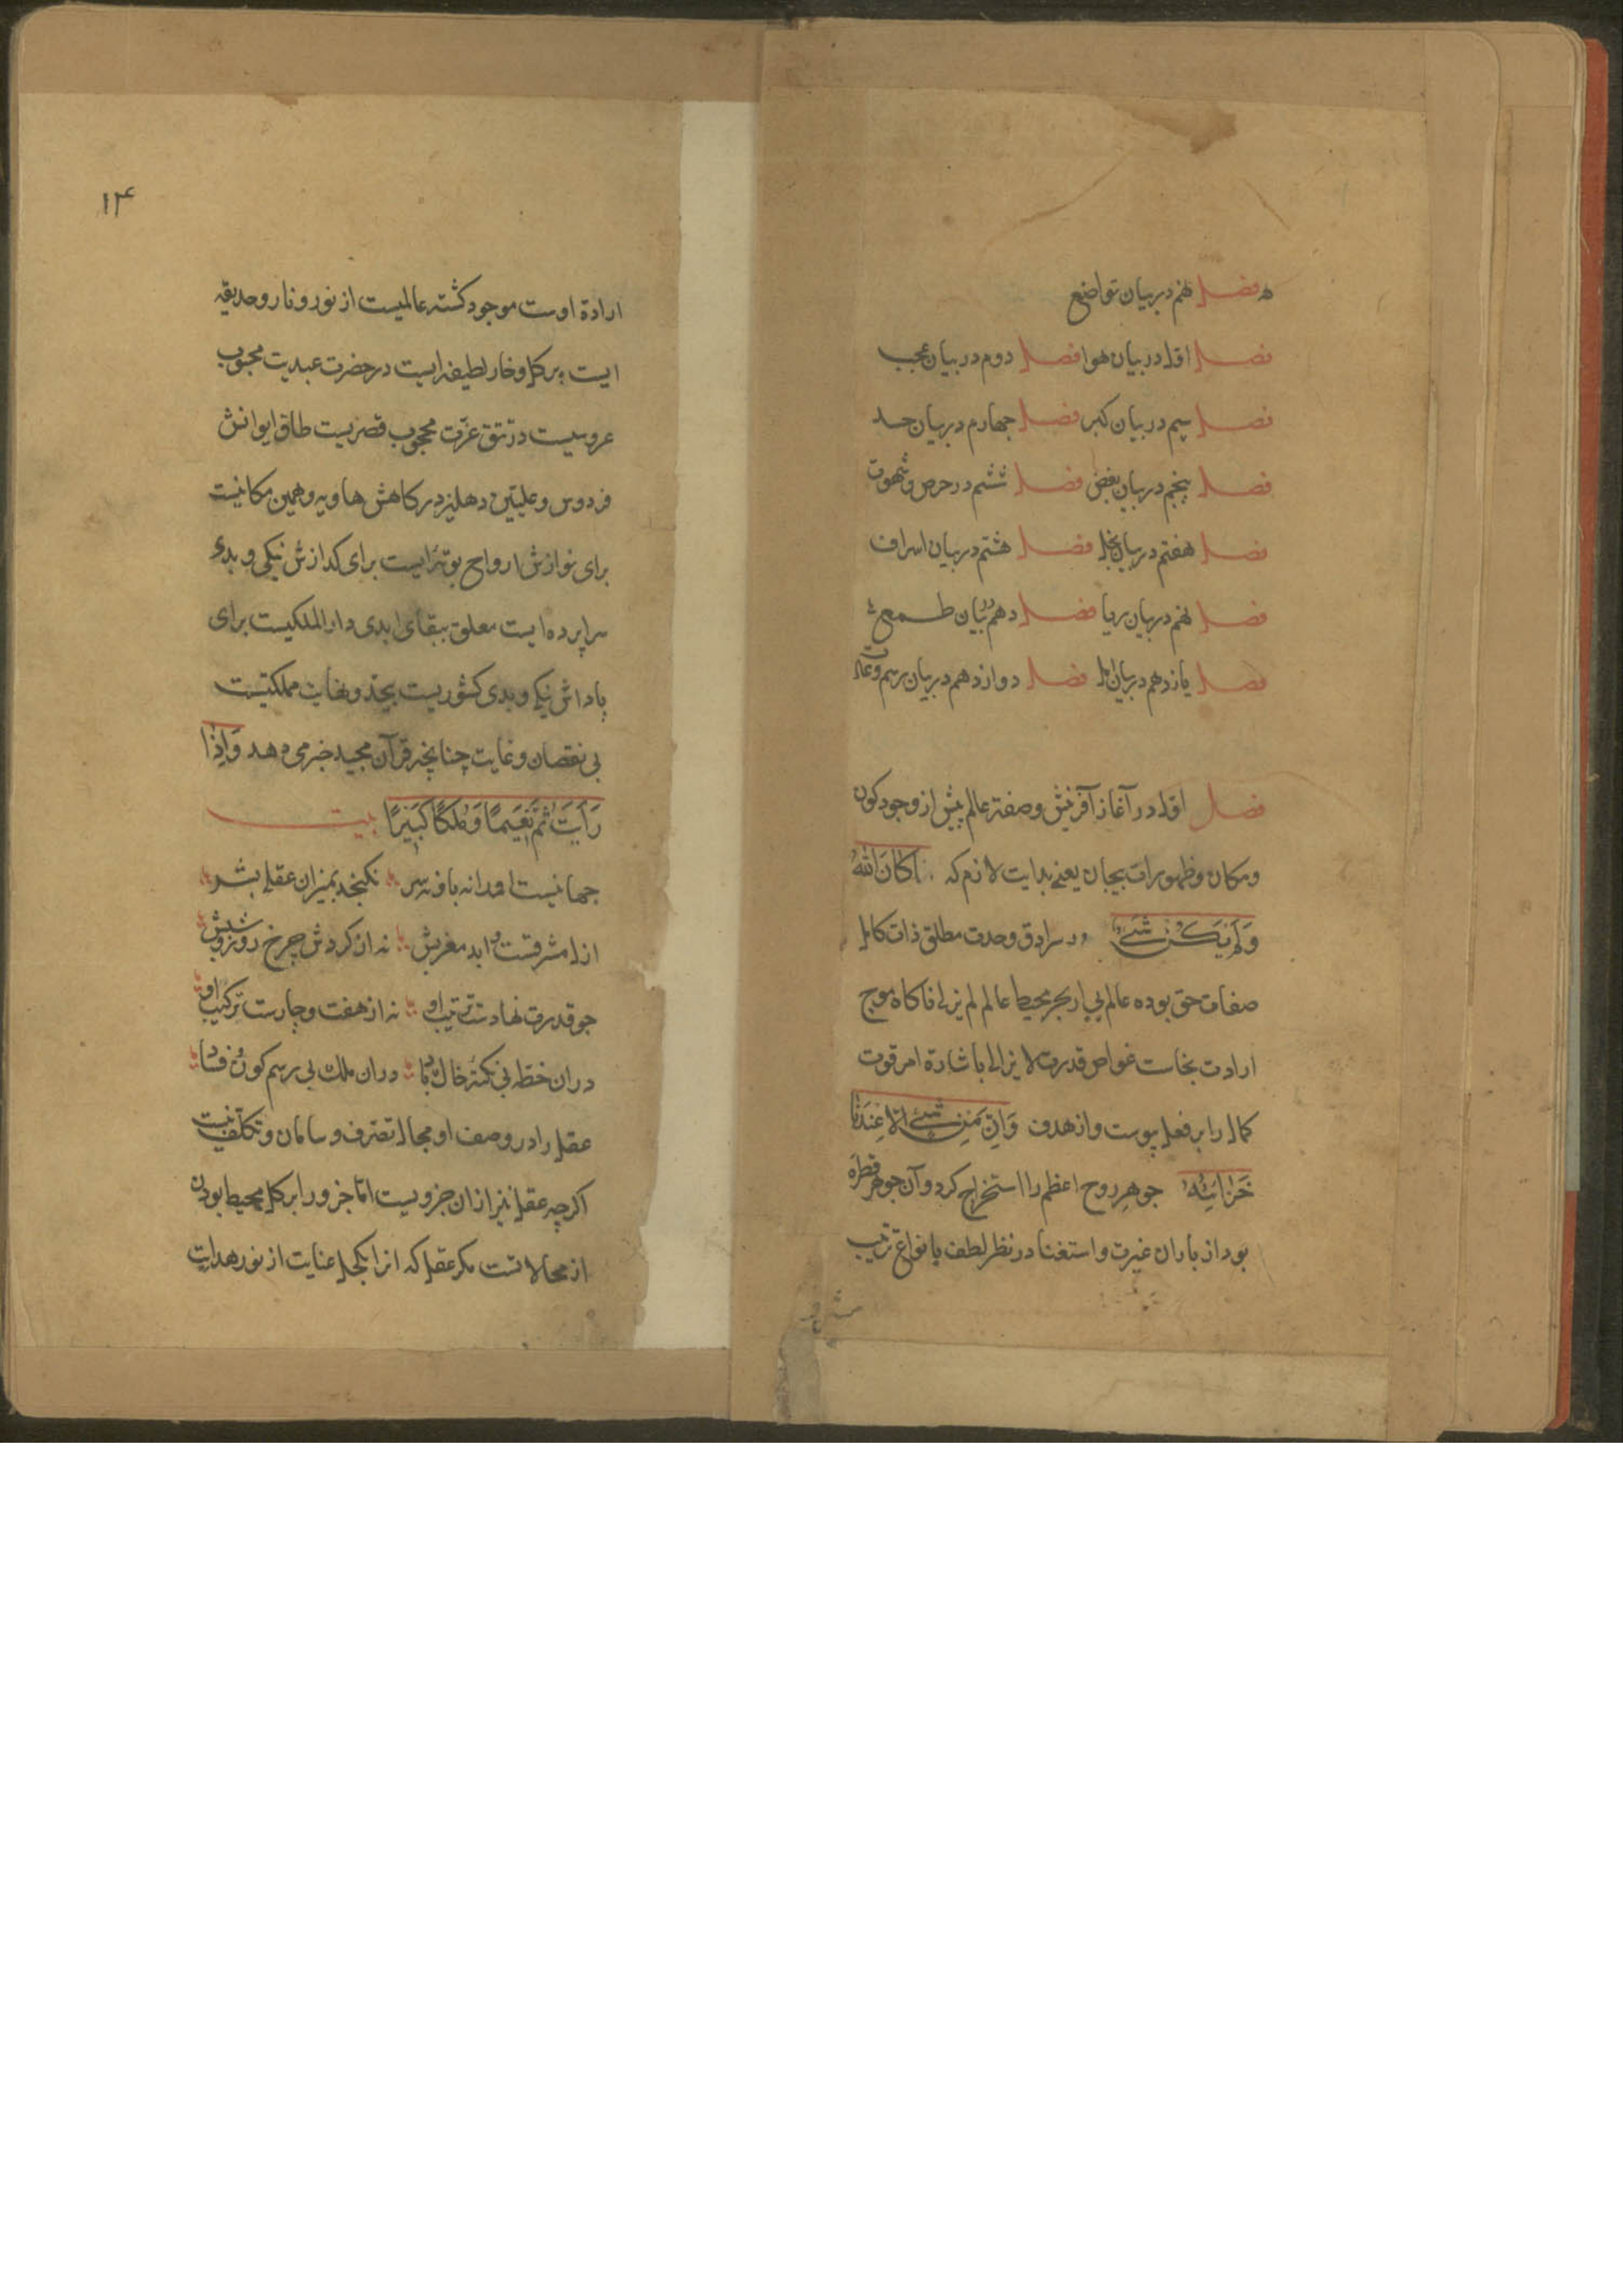 فصل نهم در بیان تواضع
فصل اول در بیان هوا فصل دوم در بیان عجب
فصل سیم در بیان کبر فصل چهارم در بیان حسد
فصل پنجم در بیان بغض فصل ششم در حرص و شهوت
فصل هفتم در بیان بخل فصل هشتم در بیان اسراف
فصل نهم در بیان ریا فصل دهم در بیان طمع
فصل یازدهم در بیان امل فصل دوازدهم در بیان رسم و عادت
فصل اول در آغاز آفرینش و صفة عالم پیش از وجود کون
و مکان و ظهورات بیجان یعنی بدایت لازم که کَانَ اللهُ
وَلَمْ یَکُنْ شَیْءٌ در سرادق وحدت مطلق ذات کامل
صفات حق بوده عالم بی‌ار بحر محیط عالم لم یزلی ناکاه موج
ارادت بخاست غواص قدرت لا یزالی باشارة امر قوت
کمال را بر فعل پیوست و از هدف وَاِنْ مِنْ شَیْءٍ اِلّا عِنْدَنَا
خَزَائِنُهُ جوهر روح اعظم را استخراج کرد و آن جوهر قطره
بود از باران غیرت و استغنا در نظر لطف بانواع ترتیب
۱۴
ارادة اوست موجود کشته عالمیست از نور و نار و حدیقه
ایست پر کل و خار لطیفه ایست در حضرت عبدیت محبوب
عروسیست در تتق عزت محجوب قصریست طاق ایوانش
فردوس و علیین دهلیز درکاهش هاویه و همین مکانیست
برای نوازش ارواح بوتهٔ ایست برای کدازش نیکی و بدی
سراپرده ایست معلق ببقای ابدی دار الملکیست برای
پاداش نیکی و بدی کشوریست بیحد و نهایت مملکتیست
بی نقصان و غایت چنانچه قرآن مجید خبر می دهد وَاِذَا
رَأَیْتَ ثَمَّ نَعِیْمًا وَمُلْکًا کَبِیْرًا بیت
جهانیست نه پا و نه سر نکنجد بمیزان عقل بشر
ازل مشرقست و ابد مغربش نه از کردش چرخ روز و شبش
جو قدرت نهادست ترتیب او نه از هفت و چارست ترکیب او
دران خطه بی نکتهٔ خاک و باد دران ملک بی رسم کون و فساد
عقل را در وصف او مجال تصرف و سامان و تکلف نیست
اکرچه عقل نیز ازان جزویست اما جزو را بر کل محیط بودن
از محالاتست مکر عقل که از کحل عنایت از نور هدایت